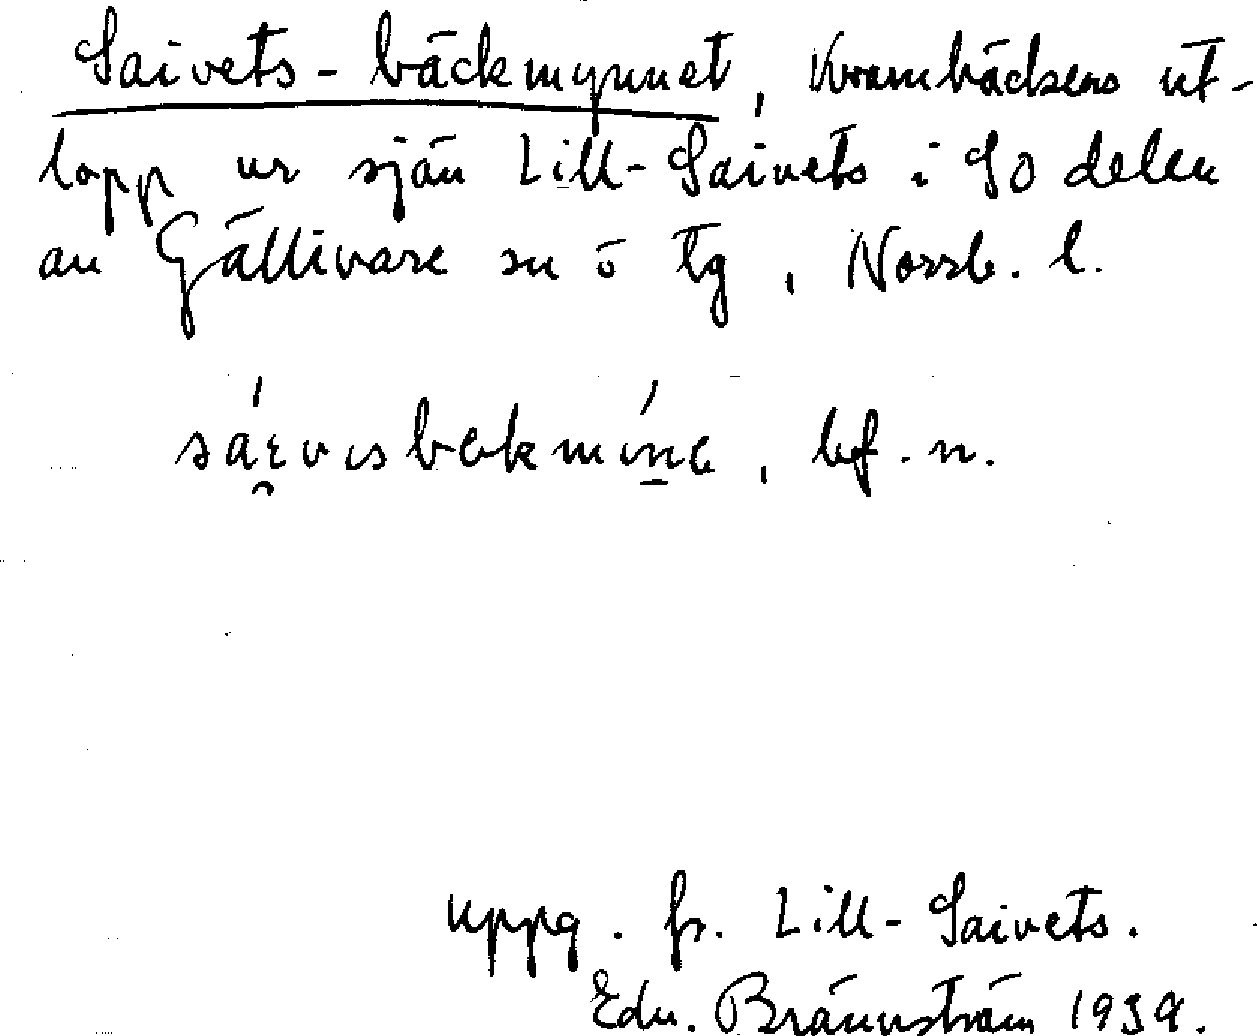 Saivets-bäckmynnet, Krambäckens ut-
lopp ur sjön Lill-Saivets i SO delen
av Gällivare sn o tg, Norrb. l.
bf. n.
uppg. fr. Lill-Saivets.
Edv. Brännström 1939.